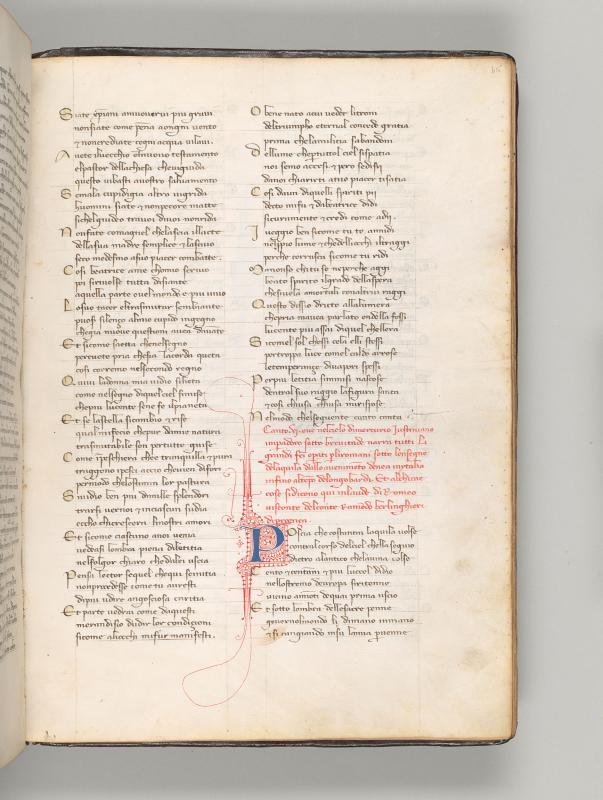 Siate xpiani amuovervi piu gravi
nonsiate come pena aongni vento
& noncrediate cogni acqua vilavi.
Avete iluecchio elnuovo testamento
elpastor dellachiesa chevighuida
questo vibasti avostro salvamento
Semala cupidigia altro vigrida
huomini siate & nonpecore matte
sichelguideo travoi divoi nonrida
Nonfate comaquel chelascia illatte
dellasua madre semplice & lascivo
seco medesmo asuo piacer combatte.
Cosi beatrice ame chomio scrivo
poi sirivolse tutta disiante
aquella parte ovelmondo e piu vivo
Losuo tacer eltrasmutar sembiante
puosi silenço almio cupido ingegno
chegia nuove questioni avea davate
Et sicome saetta chenelsegno
percuote pria chesia lacorda queta
cosi corremo nelsecondo regno
Quivi ladonna mia vidio silieta
come nelsegno diquel ciel simise
chepiu lucente sene fe ilpianeta
Et se lastella sicambio & rise
qual mifecio chepur damia natura
trasmutabile son pertutte guise
Come ipeschiera che tranquilla & pura
traggono ipesci accio chevien difori
permodo chelostimin lor pastura
Si vidio ben piu dimille splendori
trarsi vernoi & inciascun sudia
eccho chicrescera linostri amori
Et sicome ciascuno anoi venia
vedeasi lombra piena diletitia
nelfolgor chiaro che dalei uscia
Pensa lector sequel chequi sinitia
nonprocedesse come tu avresti
dipiu udire angosciosa caritia
Et parte vedrai come daquesti
merandisio dudir lor condiçioni
sicome aliocchi mifur manifesti.
O bene nato acui veder litroni
deltriumpho eternal concede gratia
prima chelamilitia sabandoni
Dellume chepertuttol ciel sispatia
noi semo accesi & pero sedisii
danoi chiarirti atuo piacer tisatia
Cosi daun diquelli spiriti pii
decto mifu & dabeatrice didi
sicuramente & credi come adii.
I veggio ben sicome tu tannidi
perche corrusca sicome tu ridi
beato spirito ilgrado dellaspera
Questo dissio dricto allalumiera
chepria mavea parlato ondella fessi
lucente piu assai diquel chellera
Sicomel sol chessi cela elli stessi
pertroppa luce comel caldo arrose
letemperançe divapori spessi
Perpiu letitia simmisi nascose
dentral suo raggio lafigura santa
& cosi chiusa chiusa mirispose
Nelmodo chelseguente canto canta
Canto .vj. one nelcielo dimercurio Justiniano
impadore sotto brevitade narra tutti li
grandi facti operati pliromani sotto lonsegne
dellaquila dallo avenimento denea inytalia
infino altempo delongobardi. Et alchune
cose sidicono qui inlaude diRomeo
visconte delconte Ramodo berlinghieri
di provença
Poscia che costantin laquila volse
contral corso delciel chella seguio
dietro alantico chelavina tolse
Cento & centani & piu luccel didio
nellostremo deuropa siritenne
vicino amonti dequai prima uscio
Et sotto lombra dellesacre penne
governolmondo li dimano inmano
& si cangiando insu lamia pvenne